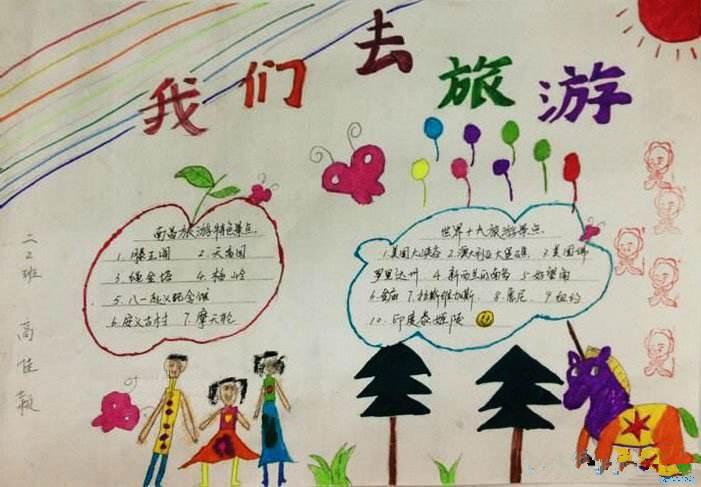 我们去旅游
南昌旅游特色景点
1. 滕王阁 2. 天香园
3. 绳金塔 4. 梅岭
5. 八一起义纪念馆
6. 安义古村 7. 摩天轮
世界十大旅游景点
1. 美国大峡谷 2. 澳大利亚大堡礁 3. 美国佛
罗里达州 4. 新西兰的南岛 5. 好望角
6. 金庙 7. 拉斯维加斯 8. 悉尼 9. 纽约
10. 印度泰姬陵
二2班 高佳